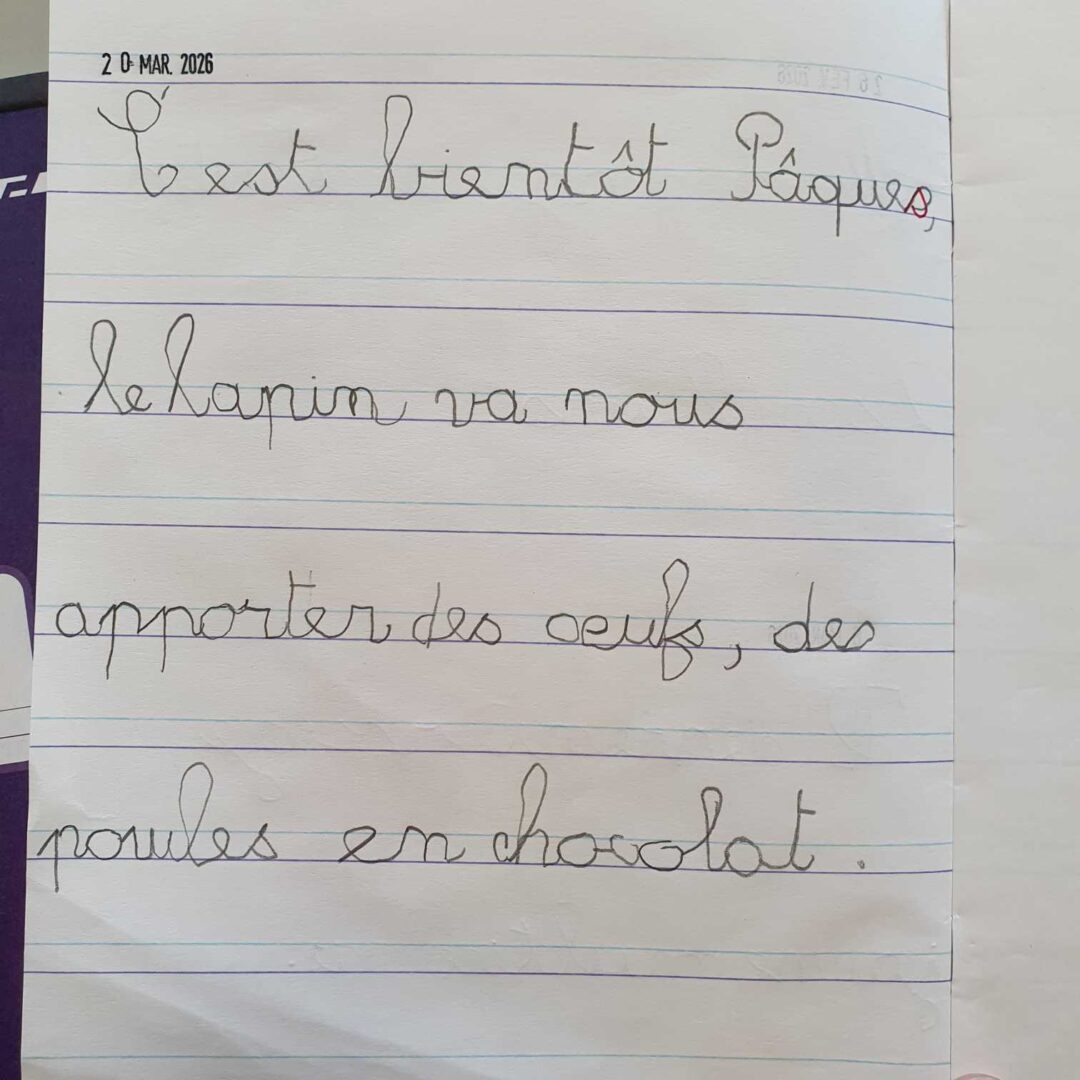 20 MAR. 2026
C'est bientôt Pâques,
le lapin va nous
apporter des oeufs, des
poules en chocolat.